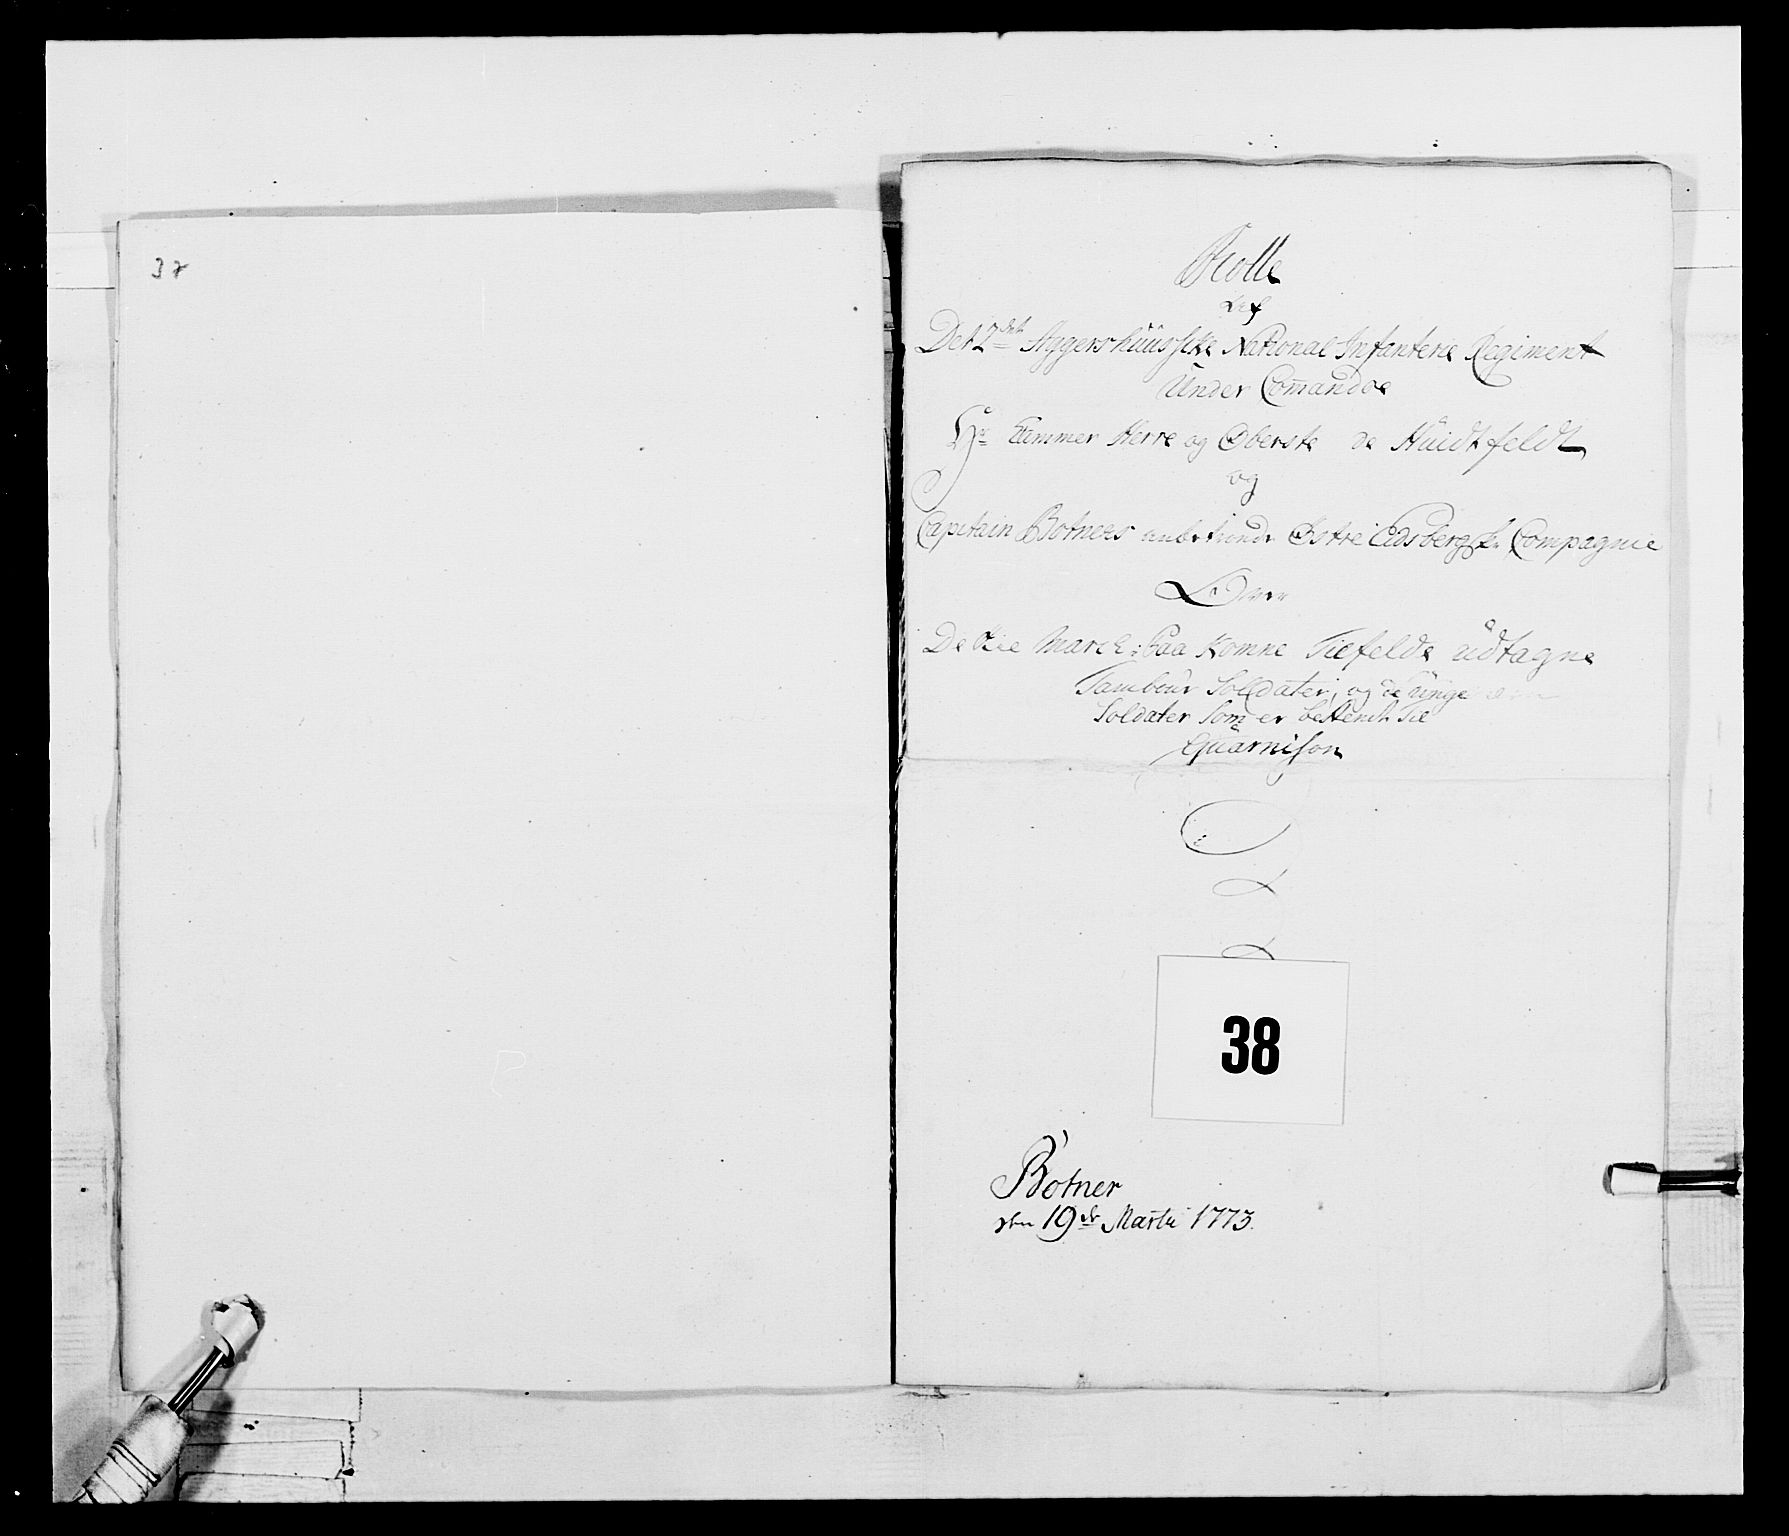 37
Rolle
Det 2det Aggershuusiske National Infanterie Regiment
Under Com̄andoe
Hr Cammer Herre og Øberste de Huidtfeldt
og
Capitain Botners anbetroede Østre Eidsbergske Compagnie
Over
De Paa Komne Tilfelde udtagne
Tambour Soldater, og de unge
Soldater Som er bestemt Til
Guarnison
38
Botner
den 19de Martii 1773.